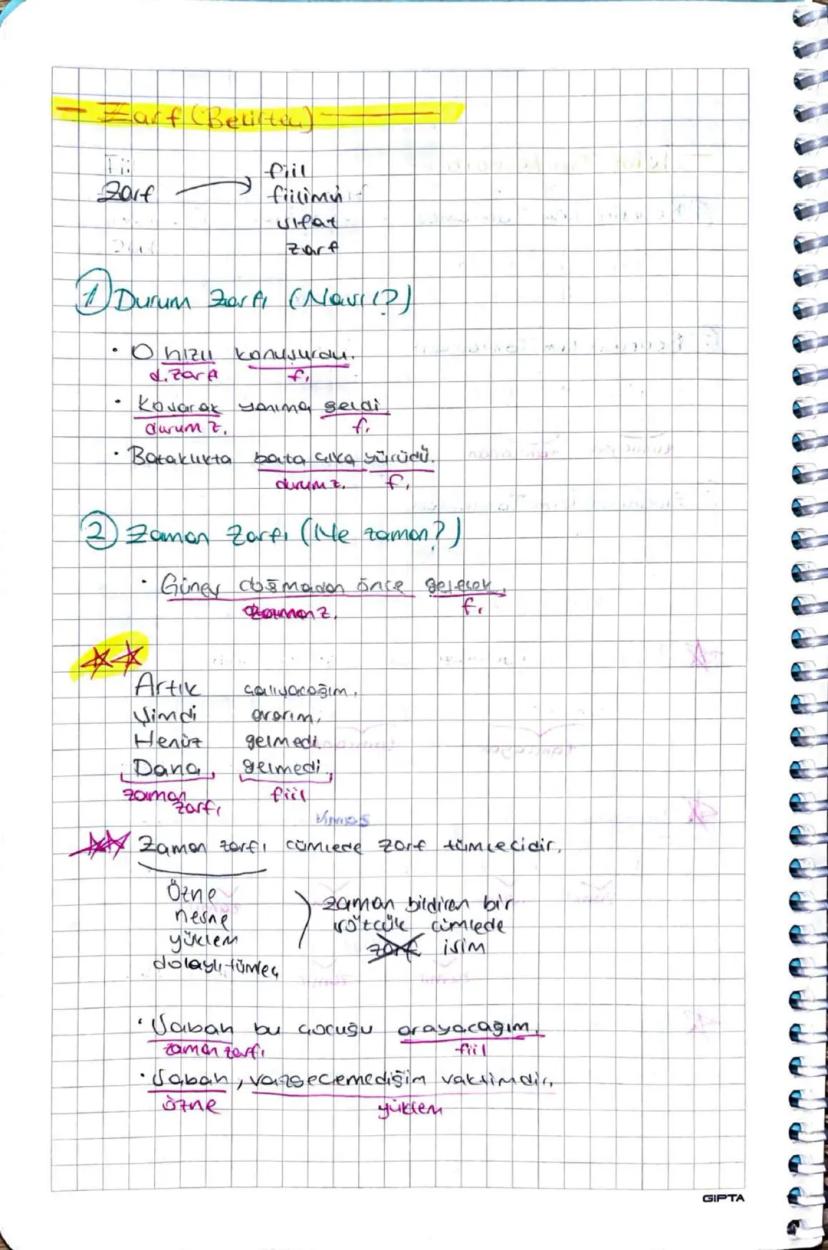 Zarf (Belirteç)
Zarf → fiil
fiilimsi
sıfat
zarf
1 Durum Zarfı (Nasıl?)
• O hızlı konuşurdu.
d. zarf f.
• Koşarak yanıma geldi
durum z. f.
• Bataklıkta bata çıka yürüdü.
durum z. f.
2 Zaman Zarfı (Ne zaman?)
• Güneş doğmadan önce gelecek.
zaman z. f.
Artık çalışacağım.
Şimdi ararım.
Henüz gelmedi.
Daha gelmedi.
zaman zarfı fiil
Zaman zarfı cümlede zarf tümlecidir.
Özne
nesne
yüklem
dolaylı tümleç
zaman bildiren bir
sözcük cümlede
zarf isim
• Sabah bu çocuğu arayacağım.
zaman zarfı fiil
• Sabah, vazgeçemediğim vaktimdir.
özne yüklem
GIPTA